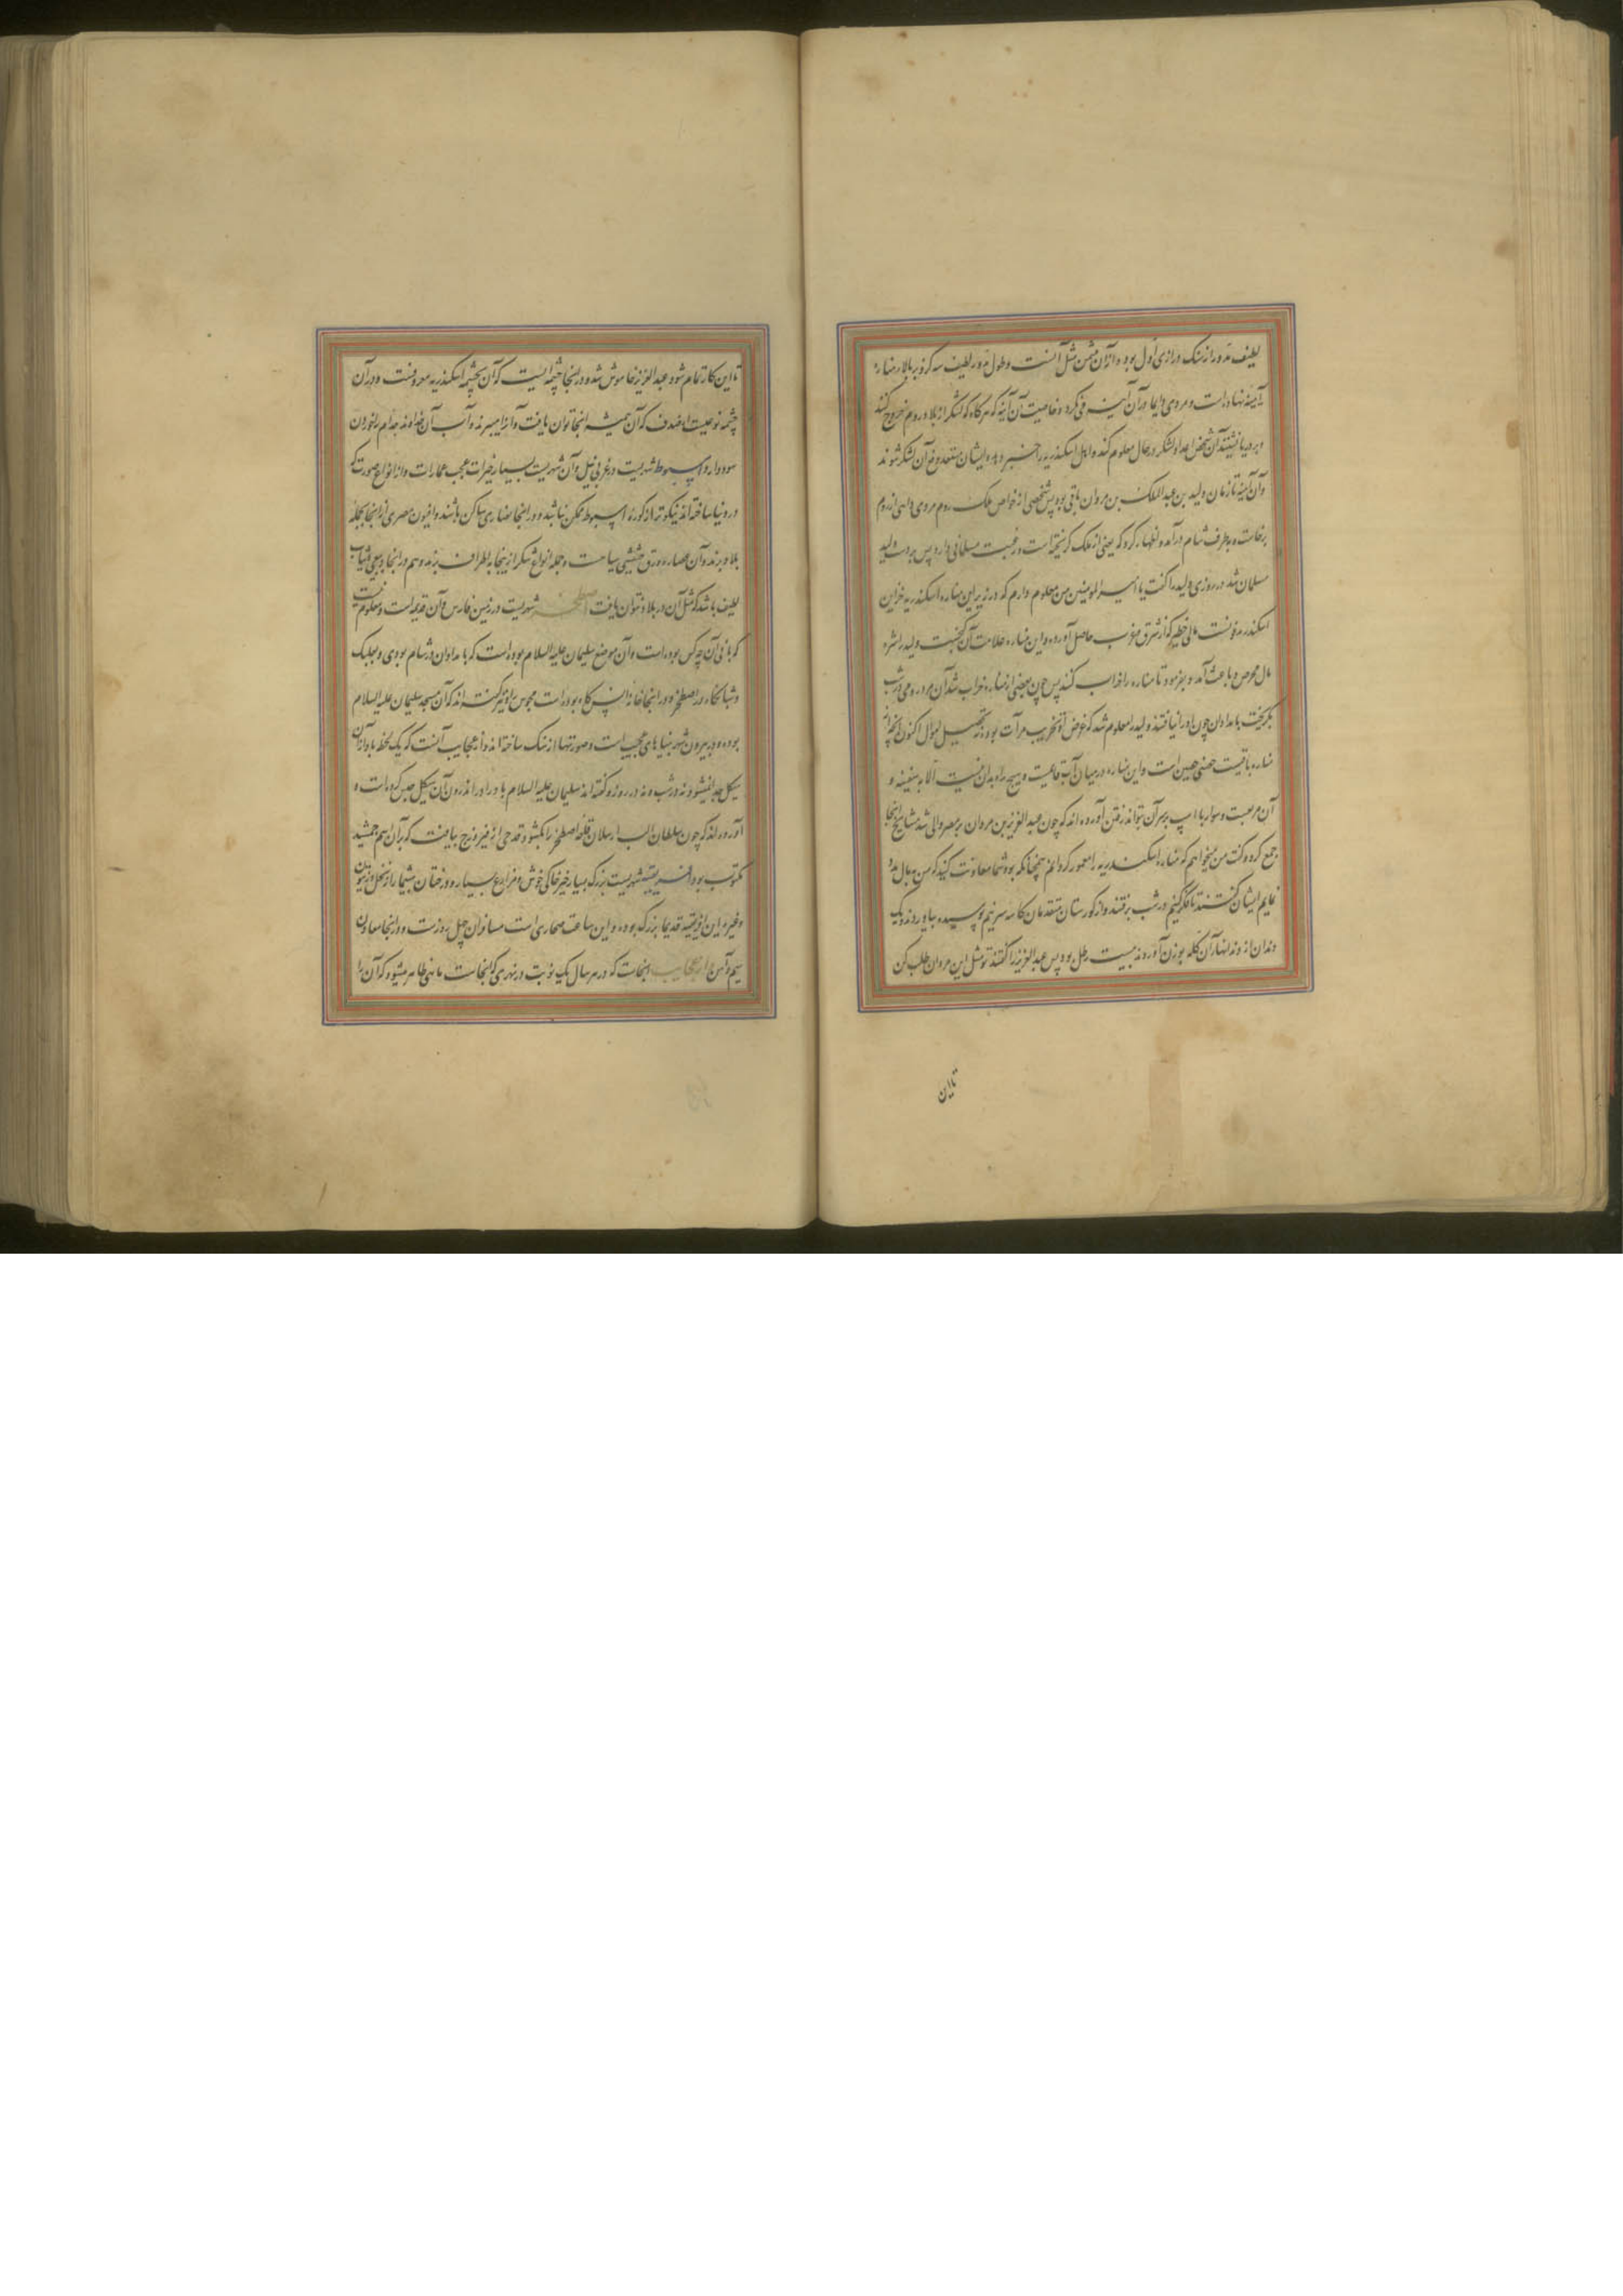 لطیف مدور از سنک درازی اول بود و از آن مثمن مثل آنست وطول مدور لطیف سه کز و بر بالای مناره
آیینه نهاده است و مردی دایما در آن آیینه می نکرد و خاصیت آن آینه که هرکاه که لشکر از بلاد روم خروج کنند
و در دریا نشینند آن شخص اعداد لشکر در حال معلوم کند و اهل اسکندریه را خبر دهد و ایشان مستعد دفع آن لشکر شوند
و آن آینه تا زمان ولید بن عبد الملک بن مروان باقی بود پس شخصی از خواص ملک روم مردی داهی از روم
برخاست و بطرف شام در آمد و اظهار کرد که یعنی از ملک کریخته است و رغبت مسلمانی دارد پس بر دست ولید
مسلمان شد در روزی ولید را کفت یا امیر المومنین من معلوم دارم که در زیر این مناره اسکندریه خزاین
اسکندر مدفونست مالی خطیر که از شرق و غرب حاصل آورده و این مناره علامت آن کنجست ولید را شره
مال محرص و باعث آمد و بفرمود تا مناره را خراب کنند پس چون بعضی از مناره خراب شد آن مرد رومی در شب
بکریخت بامدادان چون او را نیافتند ولید را معلوم شد که غرض او تخریب مرآت بود نه تحصیل اموال اکنون آنچه از
مناره باقیست حصنی حصین است و این مناره در میان آب واقعست و هیچ راه بدان نیست الا به سفینه و
آن مربعست و سوار با اسب بر سر آن تواند رفتن آورده اند که چون عبد العزیز بن مروان بر مصر والی شد مشایخ آنجا
جمع کرد و کفت من میخواهم که مناره اسکندریه را معمور کردانم همچنانکه بود شما معاونت کنید که من بمال مدد
نمایم ایشان کفتند تا فکر کنیم در شب برفتند و از کورستان متقدمان کاسه سر نیم پوسیده بیاوردند و یک
دندان از دندانهای آن کله بوزن آوردند بیست رطل بود پس عبد العزیز را کفتند تو مثل این مردان طلب کن
تا این
تا این کار تمام شود عبد العزیز خاموش شد و در اینجا چشمه ایست که آن بچشمه اسکندریه معروفست و در آن
چشمه نوعیست از صدف که آن همیشه اینجا توان یافت و آنرا میپزند و آب آن خداوند جذام را خوردن
سود دارد اسیوط شهریست در غربی نیل و آن شهریست بسیار خیرات عجب عمارات و از انواع صورت که
در دنیا ساخته اند نیکوتر از کوره اسیوط ممکن نباشد و در اینجا نصاری ساکن باشند و افیون مصری از اینجا بجمله
بلاد برند و آن عصاره ورق خشخاش سیاهست و جمله انواع شکر از اینجا باطراف برند و هم در اینجا دبیقی و ثیاب
لطیف باشد که مثل آن در بلاد نتوان یافت اصطخر شهریست در زمین فارس و آن قدیمه است و معلوم نیست
که بانی آن چه کس بوده است و آن موضع سلیمان علیه السلام بوده است که بامدادان در شام بودی و بعلبک
و شبانکاه در اصطخر و در اینجا خانه آتش کاه بوده است مجوس را و نیز کفته اند که آن مسجد سلیمان علیه السلام
بوده و در بیرون شهر بنیاهای عجیب است و صورتها از سنک ساخته اند و از عجایب آنست که یک لحظه باد از آن
هیکل جدا نمیشود نه در شب و نه در روز و کفته اند سلیمان علیه السلام باد را در اندرون آن هیکل حبس کرده است و
آورده اند که چون سلطان الب ارسلان قلعه اصطخر را بکشود قدحی از فیروزج بیافت که بر آن اسم جمشید
مکتوب بود افریقیه شهریست بزرک بسیار خیر خاکی خوش و مزارع بسیار و درختان بیشمار از نخل و زیتون
و غیره و این افریقیه قدیما بزرک بوده و این ساعت صحاری است مسافران چهل روزست و در اینجا معادن
سیم و آهن و از عجایب اینجاست که در هر سال یک نوبت در نهری که اینجاست ماهئی ظاهر میشود که آن را